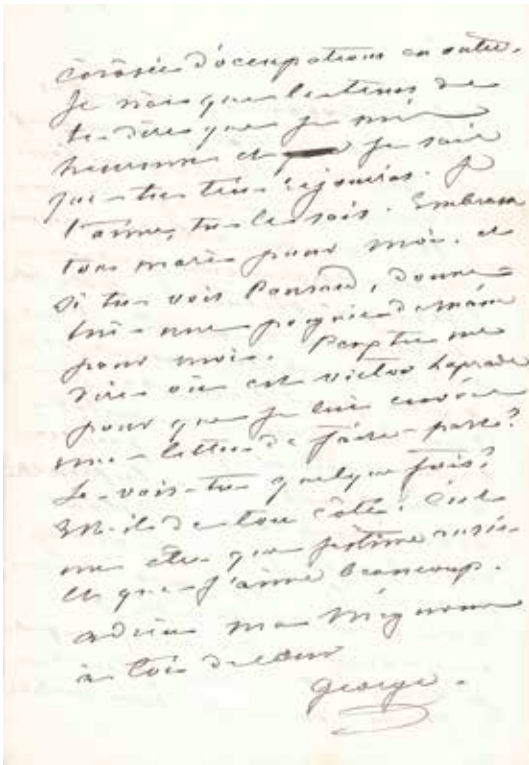 écrasée d'occupations en outre.
Je n'ai que le temps de
te dire que je suis
heureuse et je sais
que tu t'en réjouiras. Je
t'aime, tu le sais. Embrasse
ton mari pour moi. et
si tu vois Ponsard, donne-
lui une poignée de main
pour moi. Peux-tu me
dire où est victor Laprade
pour que je lui envoie
une lettre de faire-part?
Le vois-tu quelque fois?
Est-il de ton côté? C'est
un être que j'estime aussi
et que j'aime beaucoup.
adieu ma mignonne
à toi de cœur
George.